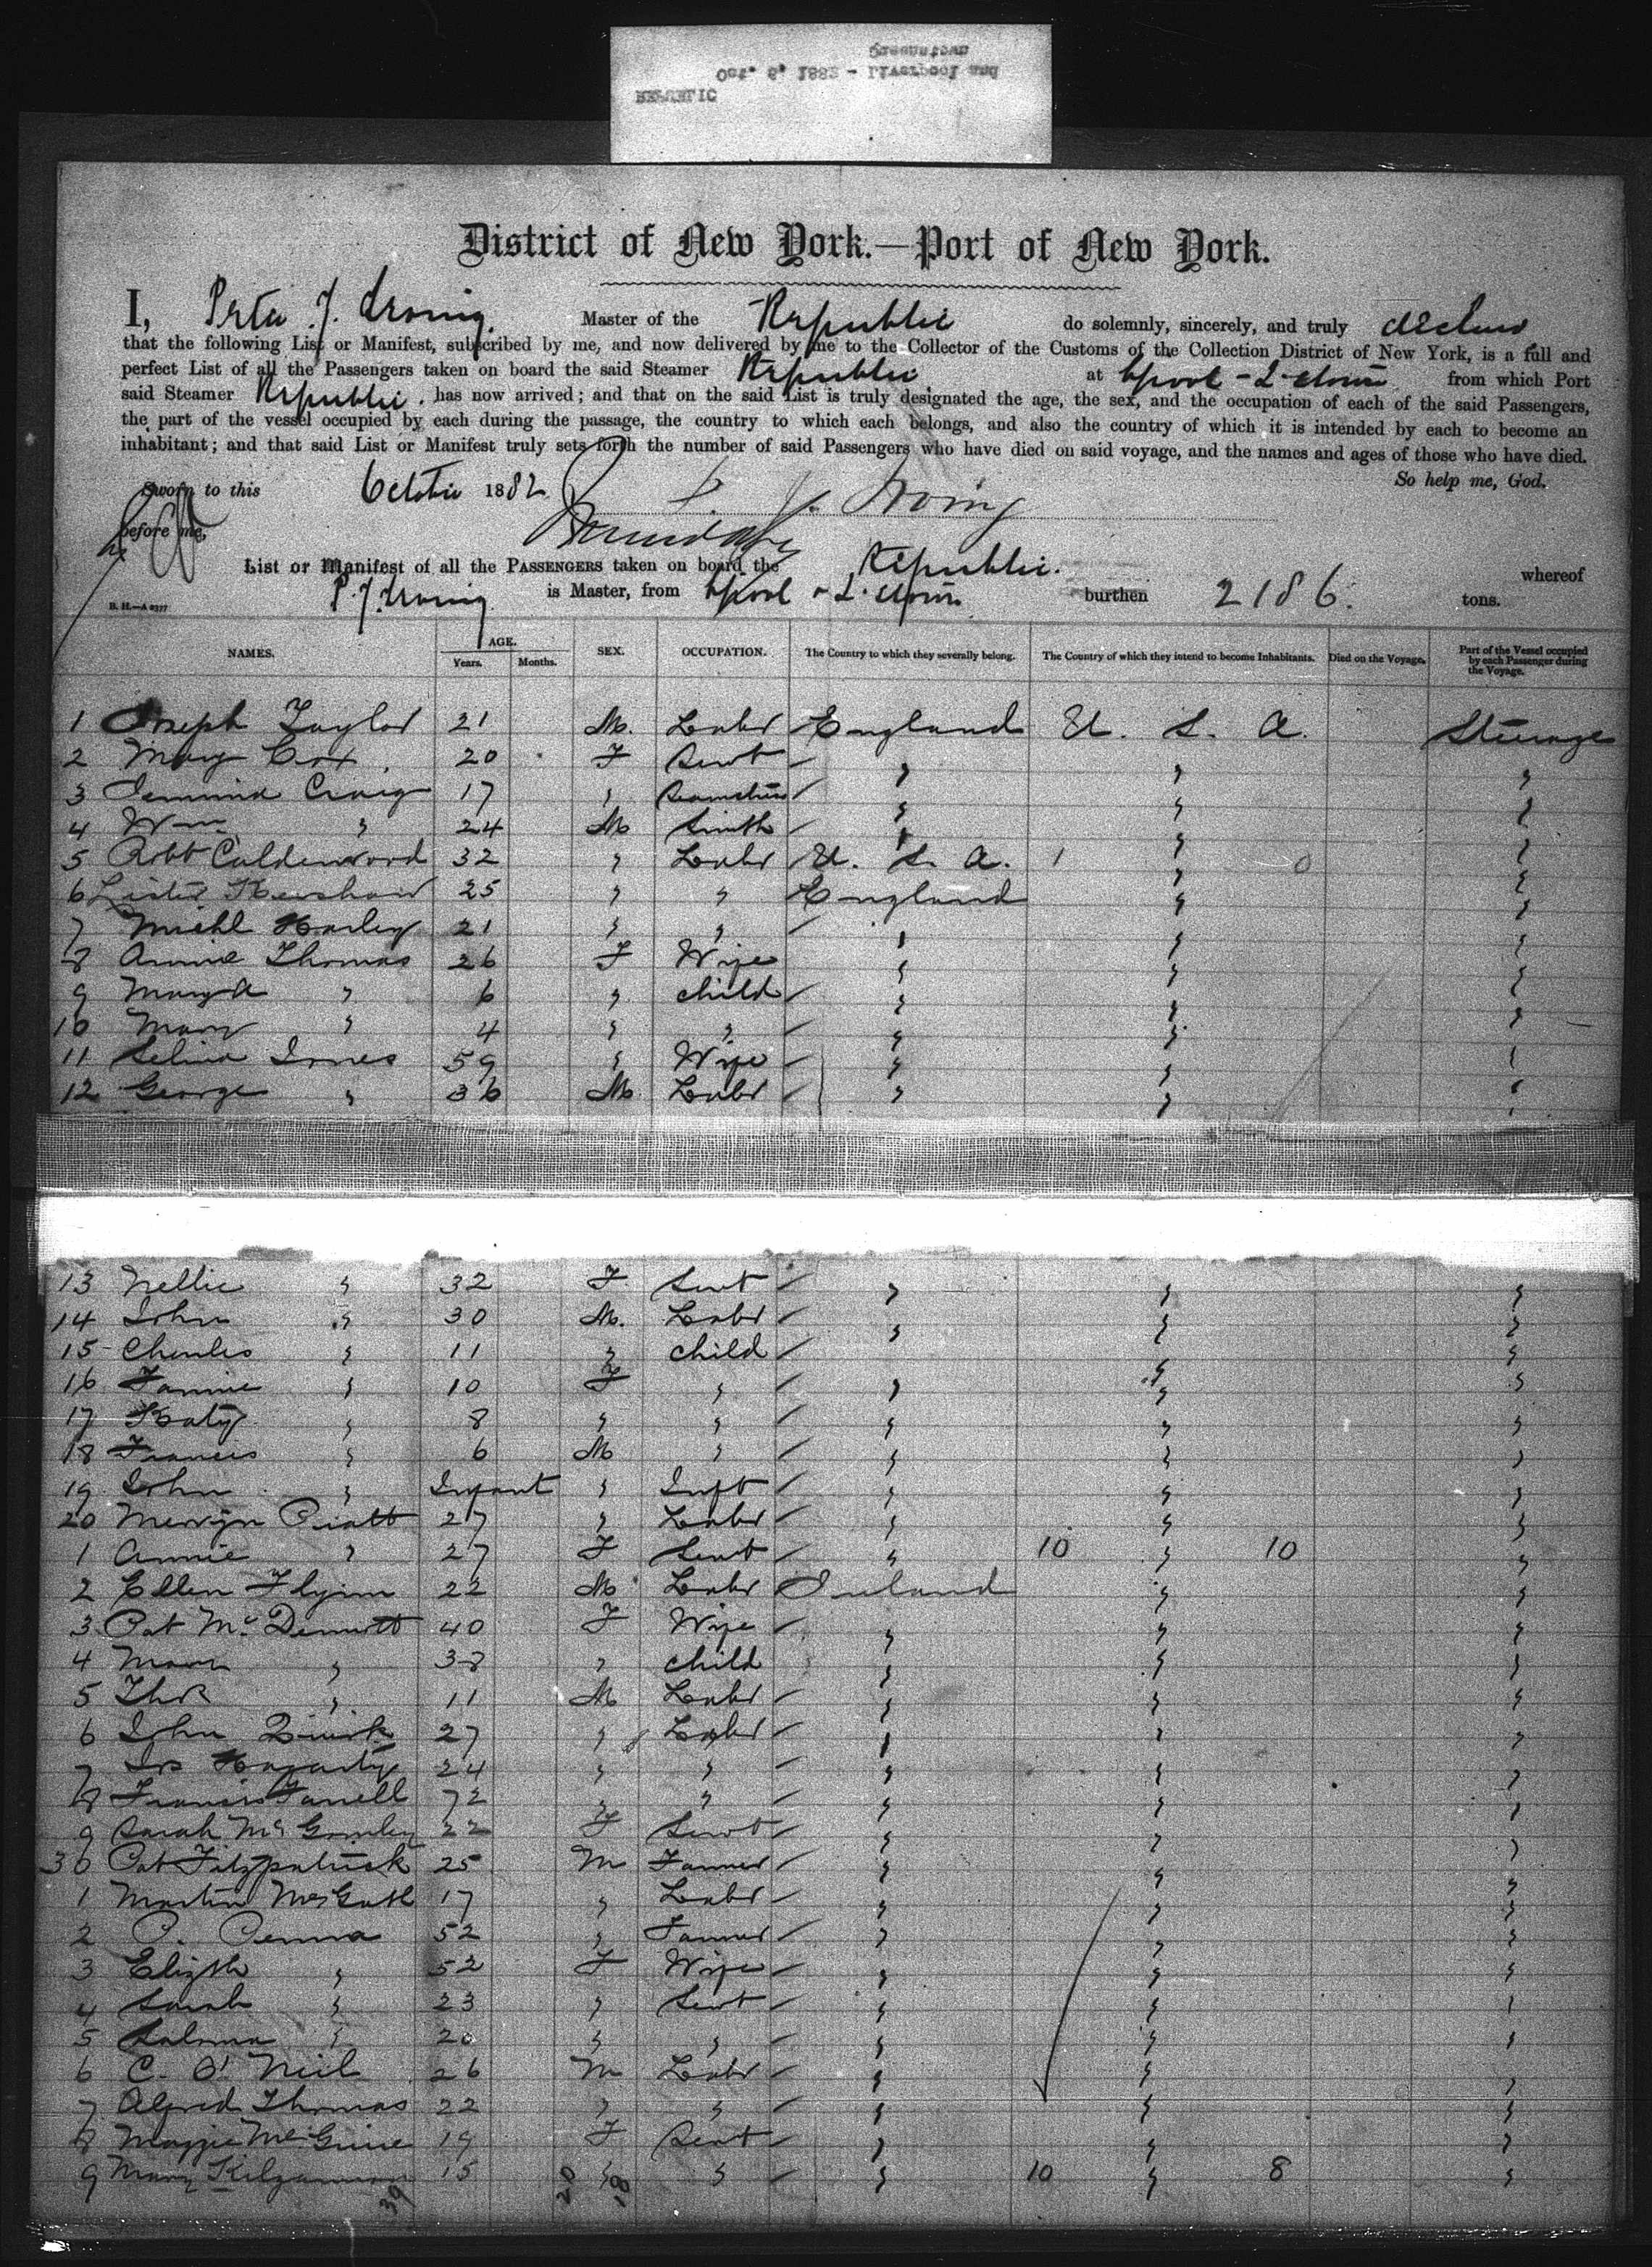 Queenstown
Oct. 9, 1882 - Liverpool and
REPUBLIC
District of New York.—Port of New York.
I, Peter J. Irving Master of the Republic do solemnly, sincerely, and truly declare
that the following List or Manifest, subscribed by me, and now delivered by me to the Collector of the Customs of the Collection District of New York, is a full and
perfect List of all the Passengers taken on board the said Steamer Republic at Lpool - Q.town from which Port
said Steamer Republic. has now arrived; and that on the said List is truly designated the age, the sex, and the occupation of each of the said Passengers,
the part of the vessel occupied by each during the passage, the country to which each belongs, and also the country of which it is intended by each to become an
inhabitant; and that said List or Manifest truly sets forth the number of said Passengers who have died on said voyage, and the names and ages of those who have died.
So help me, God.
Sworn to this October 1882 P. J. Irving
before me,
List or Manifest of all the PASSENGERS taken on board the Republic. whereof
P. J. Irving is Master, from Lpool - Q.town burthen 2186. tons.
B. H.—A 2377
NAMES. AGE. Years. Months. SEX. OCCUPATION. The Country to which they severally belong. The Country of which they intend to become Inhabitants. Died on the Voyage. Part of the Vessel occupied by each Passenger during the Voyage.
1 Joseph Taylor 21 M. Labr England U. S. A. Steerage
2 Mary Cox 20 F Servt " " "
3 Jemima Craig 17 " Seamstress " " "
4 Wm " 24 M Smith " " "
5 Robt Calderwood 32 " Labr U. S. A. 1 " 0 "
6 Lister Kershaw 25 " " England " "
7 Michl Harley 21 " " " " "
8 Annie Thomas 26 F Wife " " "
9 Mary A " 6 " child " " "
10 Mary " 4 " " " " "
11 Selina Jones 59 " Wife " " "
12 George " 36 M. Labr " " "
13 Nellie " 32 F Servt " " "
14 John " 30 M. Labr " " "
15 Charles " 11 " child " "
16 Fannie " 10 F " " " "
17 Katy " 8 " " " " "
18 Francis " 6 M " " " "
19 John " Infant " Inft " " "
20 Mervyn Pratt 27 " Labr " " "
1 Annie " 27 F Servt " 10 " 10 "
2 Ellen Flynn 22 M Labr Ireland " "
3 Pat McDermott 40 F Wife " " "
4 Mary " 38 " child " " "
5 Thos " 11 M Labr " " "
6 John Quirk 27 " Labr " " "
7 Jas Hagarty 24 " " " " "
8 Francis Farrell 72 " " " " "
9 Sarah McGormley 22 F Servt " " "
30 Pat Fitzpatrick 25 M Farmer " " "
1 Martin McGath 17 " Labr " " "
2 P. Penna 52 " Farmer " " "
3 Elizth " 52 F Wife " " "
4 Sarah " 23 " Servt " " "
5 Saloma " 20 " " " " "
6 C. O'Neil 26 M Labr " " "
7 Alfred Thomas 22 " " " " "
8 Maggie McGuire 19 F Servt " " "
9 Mary Kilgannon 15 " " " 10 " 8 "
39 20 18